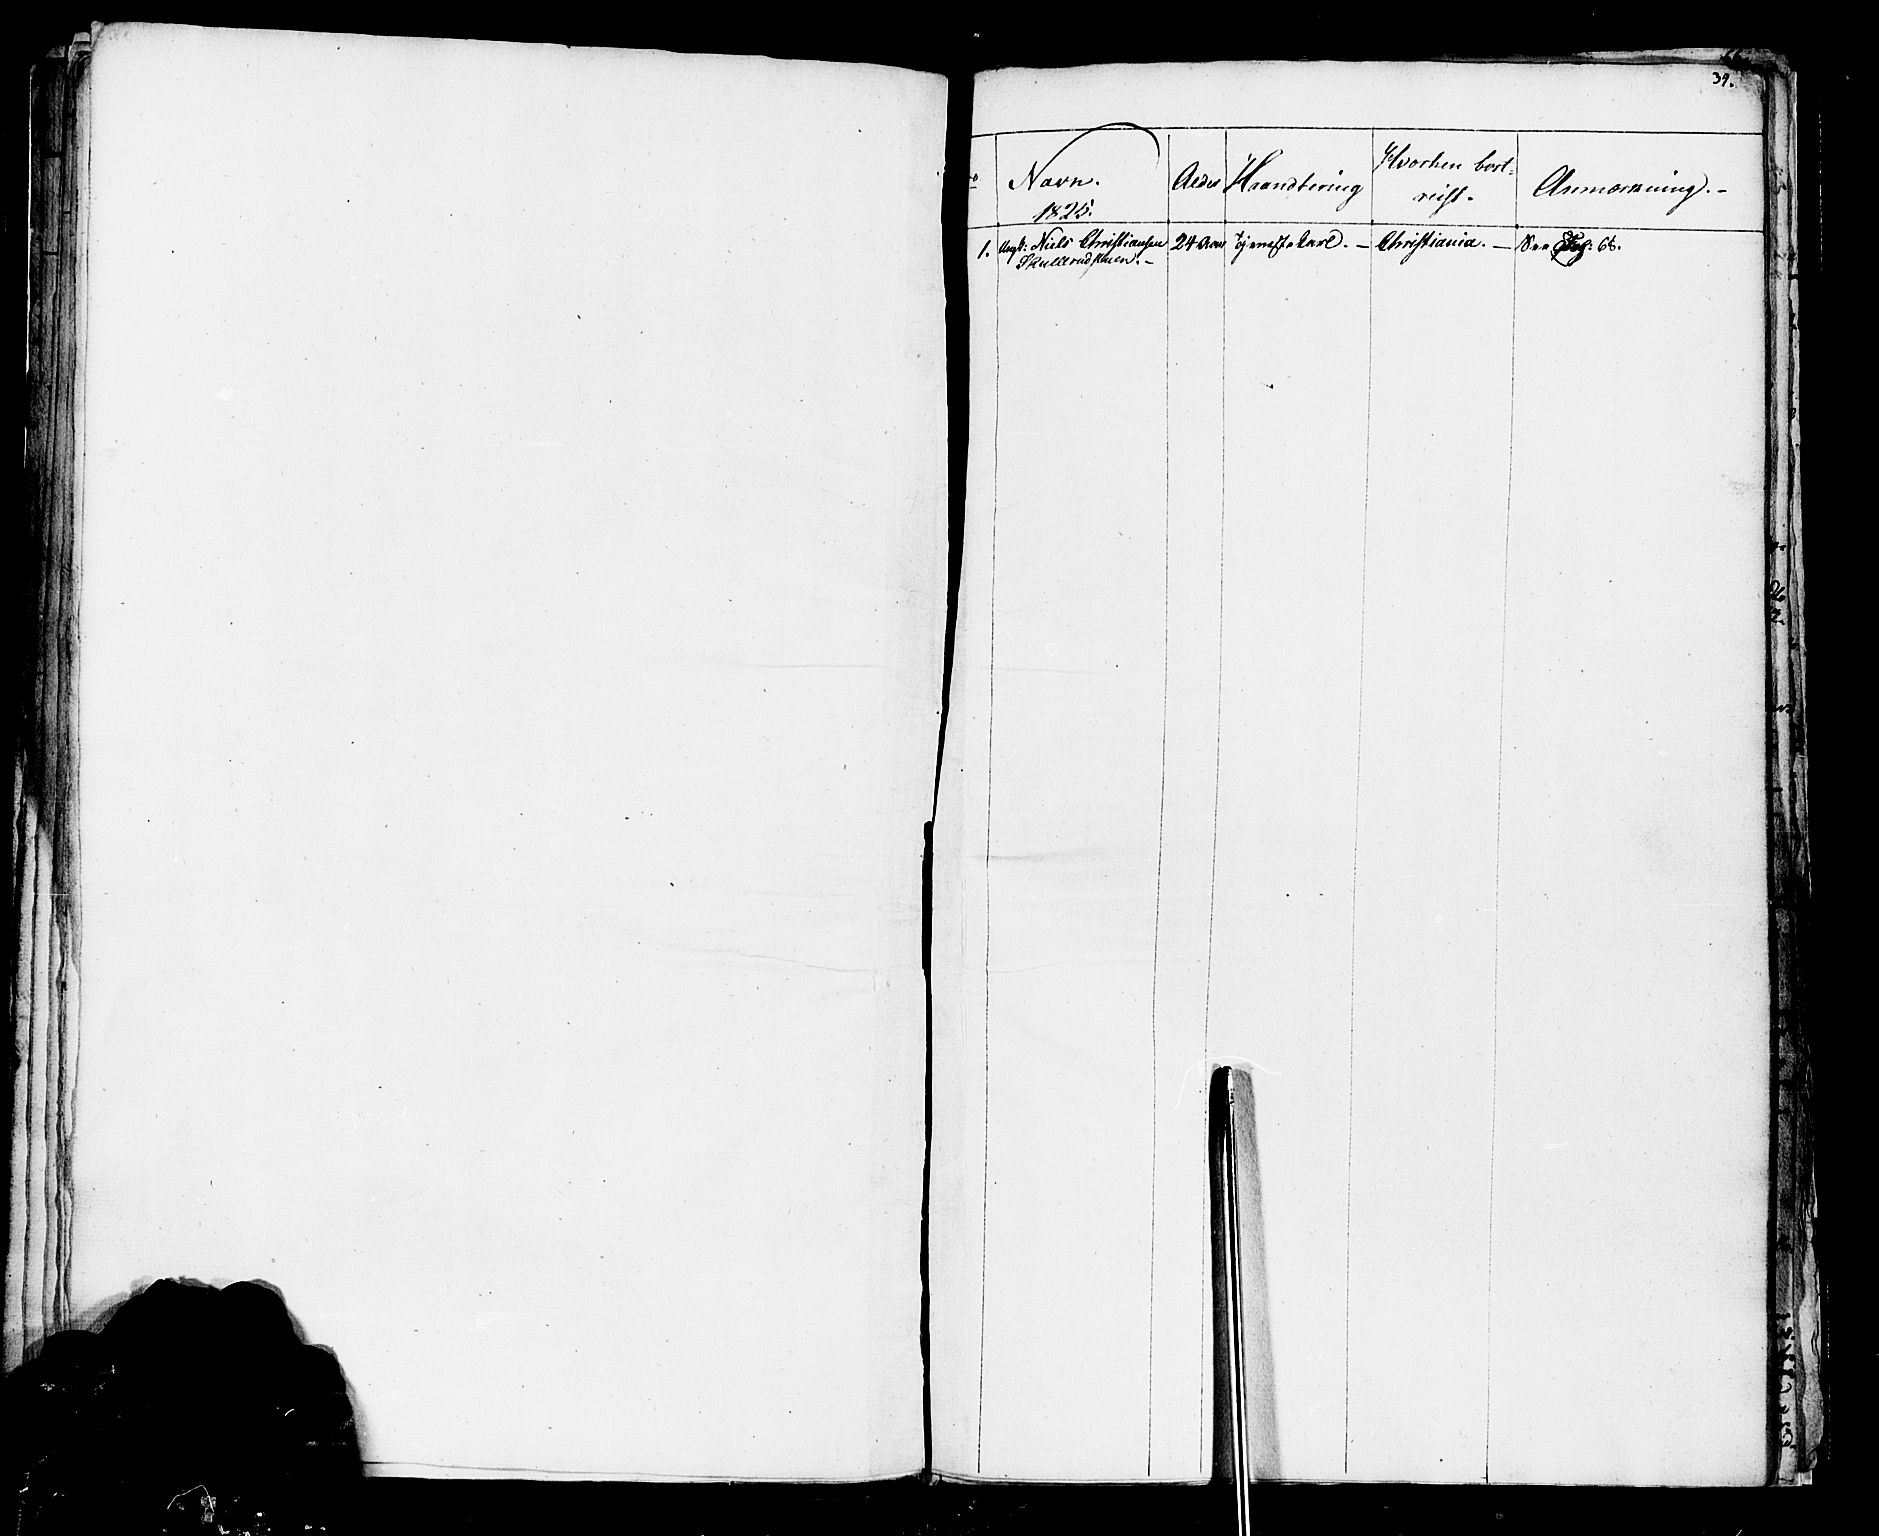 39.
Navn. 1825. Alder Haandtering Hvorhen bortreist. Anmærkning. –
1. Ungk: Niels Christiansen 24 Aar Tjenestekarl. – Christiania. – See Fol: 66.
Skullerudstuen. –